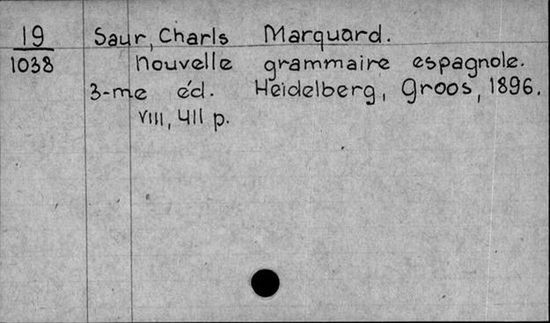 19 Saur, Charls Marquard.
1038 Nouvelle grammaire espagnole.
3-me éd. Heidelberg, Groos, 1896.
VIII, 411 p.